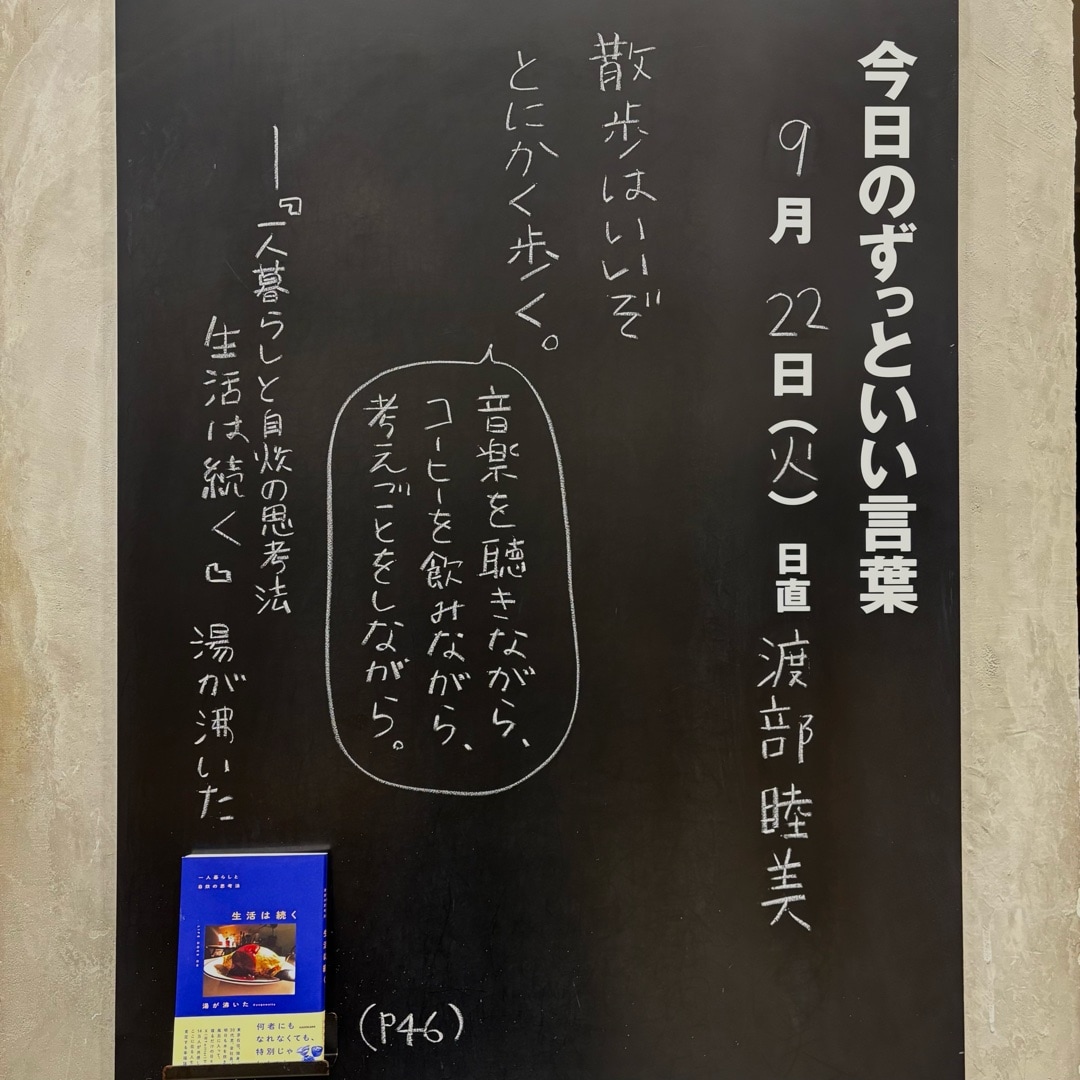 今日のずっといい言葉
9月22日(火) 日直 渡部睦美
散歩はいいぞ
とにかく歩く。
音楽を聴きながら、
コーヒーを飲みながら、
考えごとをしながら。
―『一人暮らしと自炊の思考法
生活は続く』 湯が沸いた
(P46)
一人暮らしと
自炊の思考法
生活は続く
湯が沸いた
何者にも
なれなくても、
特別じゃ